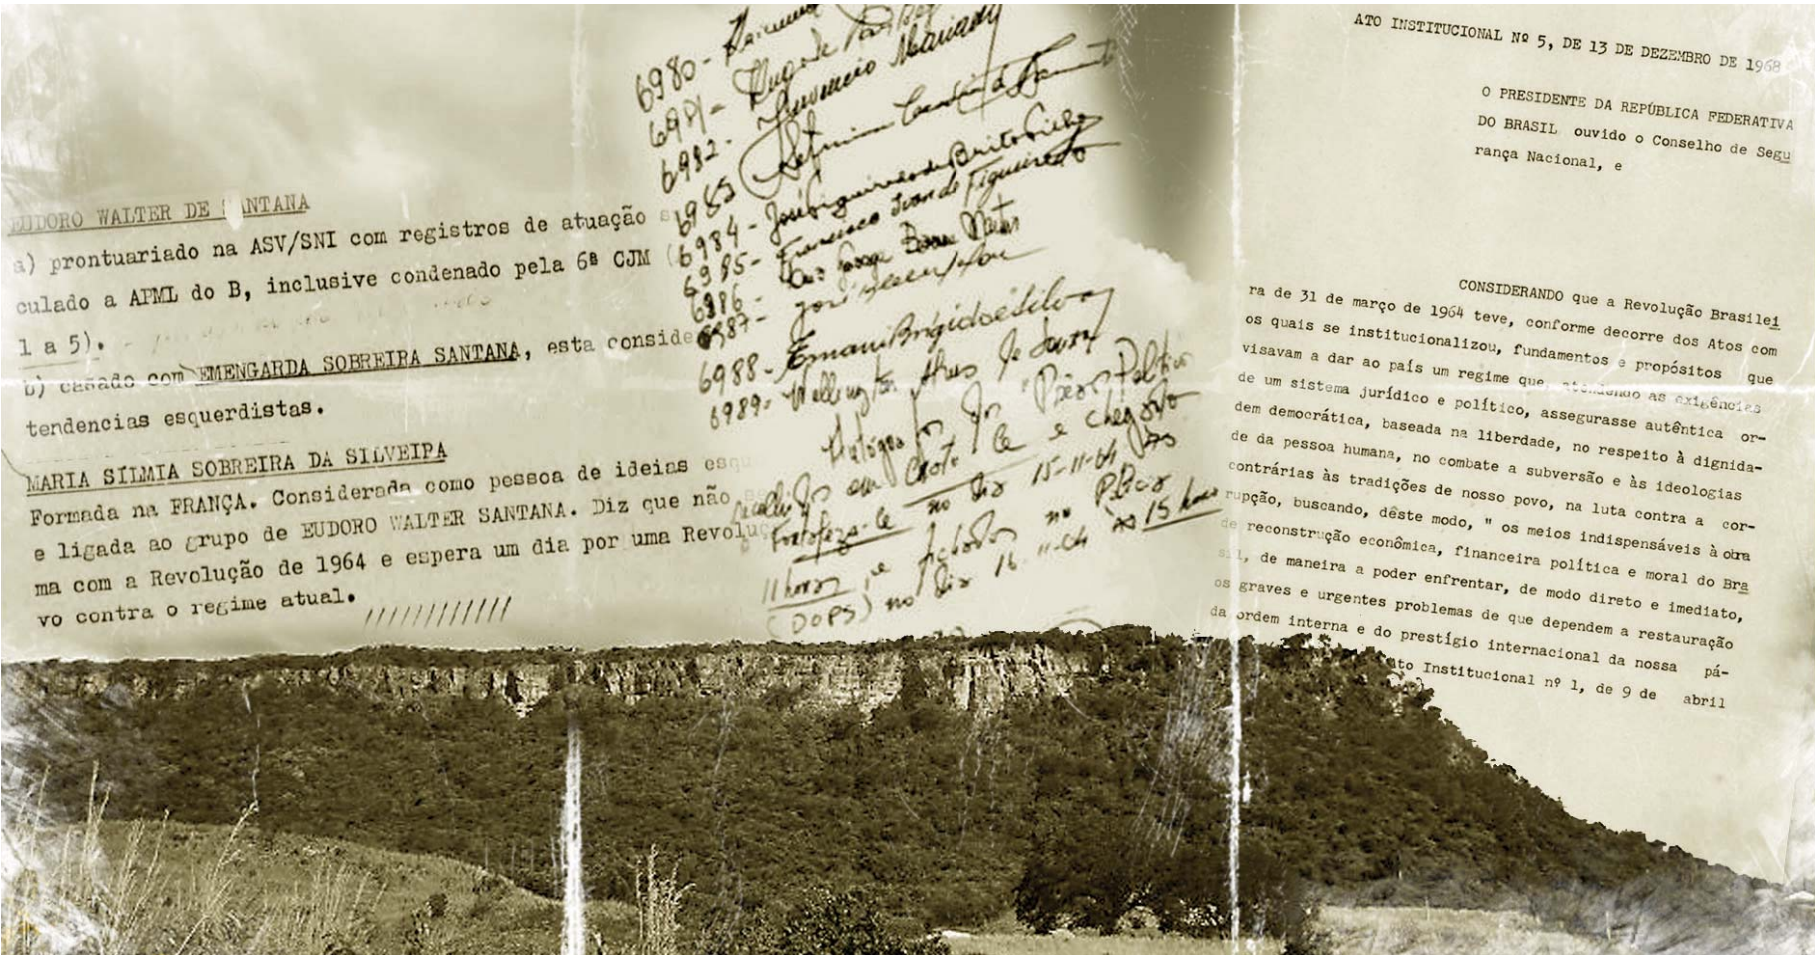 EUDORO WALTER DE SANTANA
a) prontuariado na ASV/SNI com registros de atuação
culado a APML do B, inclusive condenado pela 6ª CJM (
1 a 5).
b) casado com EMENGARDA SOBREIRA SANTANA, esta conside
tendencias esquerdistas.
MARIA SÍLMIA SOBREIRA DA SILVEIRA
Formada na FRANÇA. Considerada como pessoa de ideias esqu
e ligada ao grupo de EUDORO WALTER SANTANA. Diz que não
ma com a Revolução de 1964 e espera um dia por uma Revoluç
vo contra o regime atual.////////////
6980-
6981- Hugo de
6982- Juvencio Mariady
6983
6984- José Figueiredo de Brito Filho
6985- Francisco Ivan de Figueiredo
6986- Luis Jorge
6987- José
6988- Ernani Brígido e Silva
6989- Wellington Alves de Souza
dos "Presos Políticos
recolhidos em Crato-Ce e chegou
Fortaleza-Ce no dia 15-11-64 às
11 horas, e fichados na Polícia
(DOPS) no dia 16-11-64 às 15 horas
ATO INSTITUCIONAL Nº 5, DE 13 DE DEZEMBRO DE 1968
O PRESIDENTE DA REPÚBLICA FEDERATIVA
DO BRASIL ouvido o Conselho de Segu
rança Nacional, e
CONSIDERANDO que a Revolução Brasilei
ra de 31 de março de 1964 teve, conforme decorre dos Atos com
os quais se institucionalizou, fundamentos e propósitos que
visavam a dar ao país um regime que, atendendo as exigências
de um sistema jurídico e político, assegurasse autêntica or-
dem democrática, baseada na liberdade, no respeito à dignida-
de da pessoa humana, no combate a subversão e às ideologias
contrárias às tradições de nosso povo, na luta contra a cor-
rupção, buscando, dêste modo, " os meios indispensáveis à obra
de reconstrução econômica, financeira política e moral do Bra
sil, de maneira a poder enfrentar, de modo direto e imediato,
os graves e urgentes problemas de que dependem a restauração
da ordem interna e do prestígio internacional da nossa pá-
to Institucional nº 1, de 9 de abril